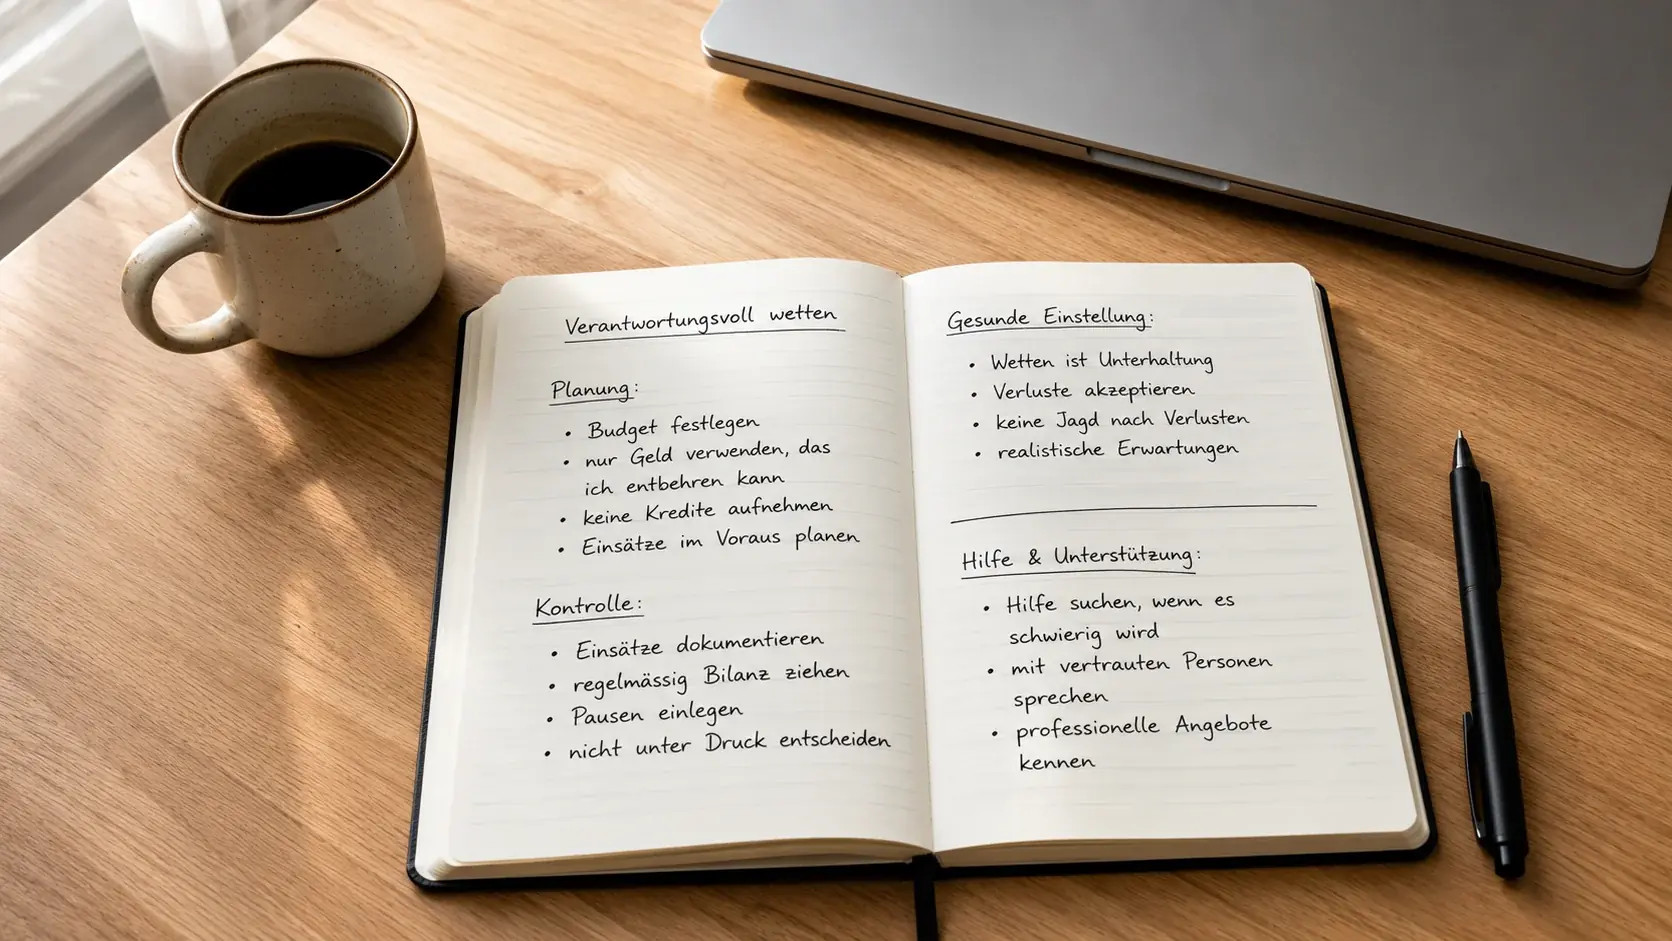 Verantwortungsvoll wetten
Planung:
• Budget festlegen
• nur Geld verwenden, das
ich entbehren kann
• keine Kredite aufnehmen
• Einsätze im Voraus planen
Kontrolle:
• Einsätze dokumentieren
• regelmässig Bilanz ziehen
• Pausen einlegen
• nicht unter Druck entscheiden
Gesunde Einstellung:
• Wetten ist Unterhaltung
• Verluste akzeptieren
• keine Jagd nach Verlusten
• realistische Erwartungen
Hilfe & Unterstützung:
• Hilfe suchen, wenn es
schwierig wird
• mit vertrauten Personen
sprechen
• professionelle Angebote
kennen